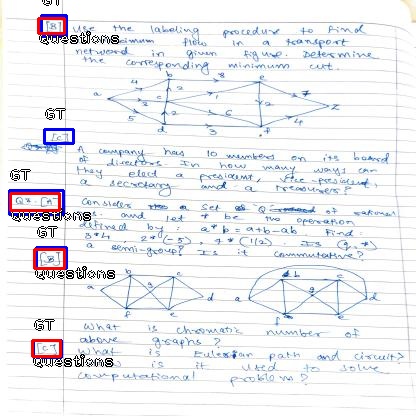 GT
[B] Use the labeling procedure to find
Questions maximum flow in a transport
network in given figure. Determine
the corresponding minimum cut.
b 8 e
4 7
a 3 2 1 2 z
5 6 4
d 3 f
GT
[C]
Questions
A company has 10 members on its board
of directors. In how many ways can
they elect a president, vice-president,
a secretary and a treasurer?
GT
Q3. [A] Consider set Q of rational
Questions nos. and let * be the operation
defined by : a*b = a+b-ab Find:
3*4 2*(-5), 7*(1/2). Is (Q,*)
a semi-group? Is it commutative?
GT
[B]
Questions
b c
a g d
f e
b c
a g d
f e
What is chromatic number of
above graphs?
GT
[C] What is Eulerian path and circuit?
Questions How is it used to solve
computational problem?